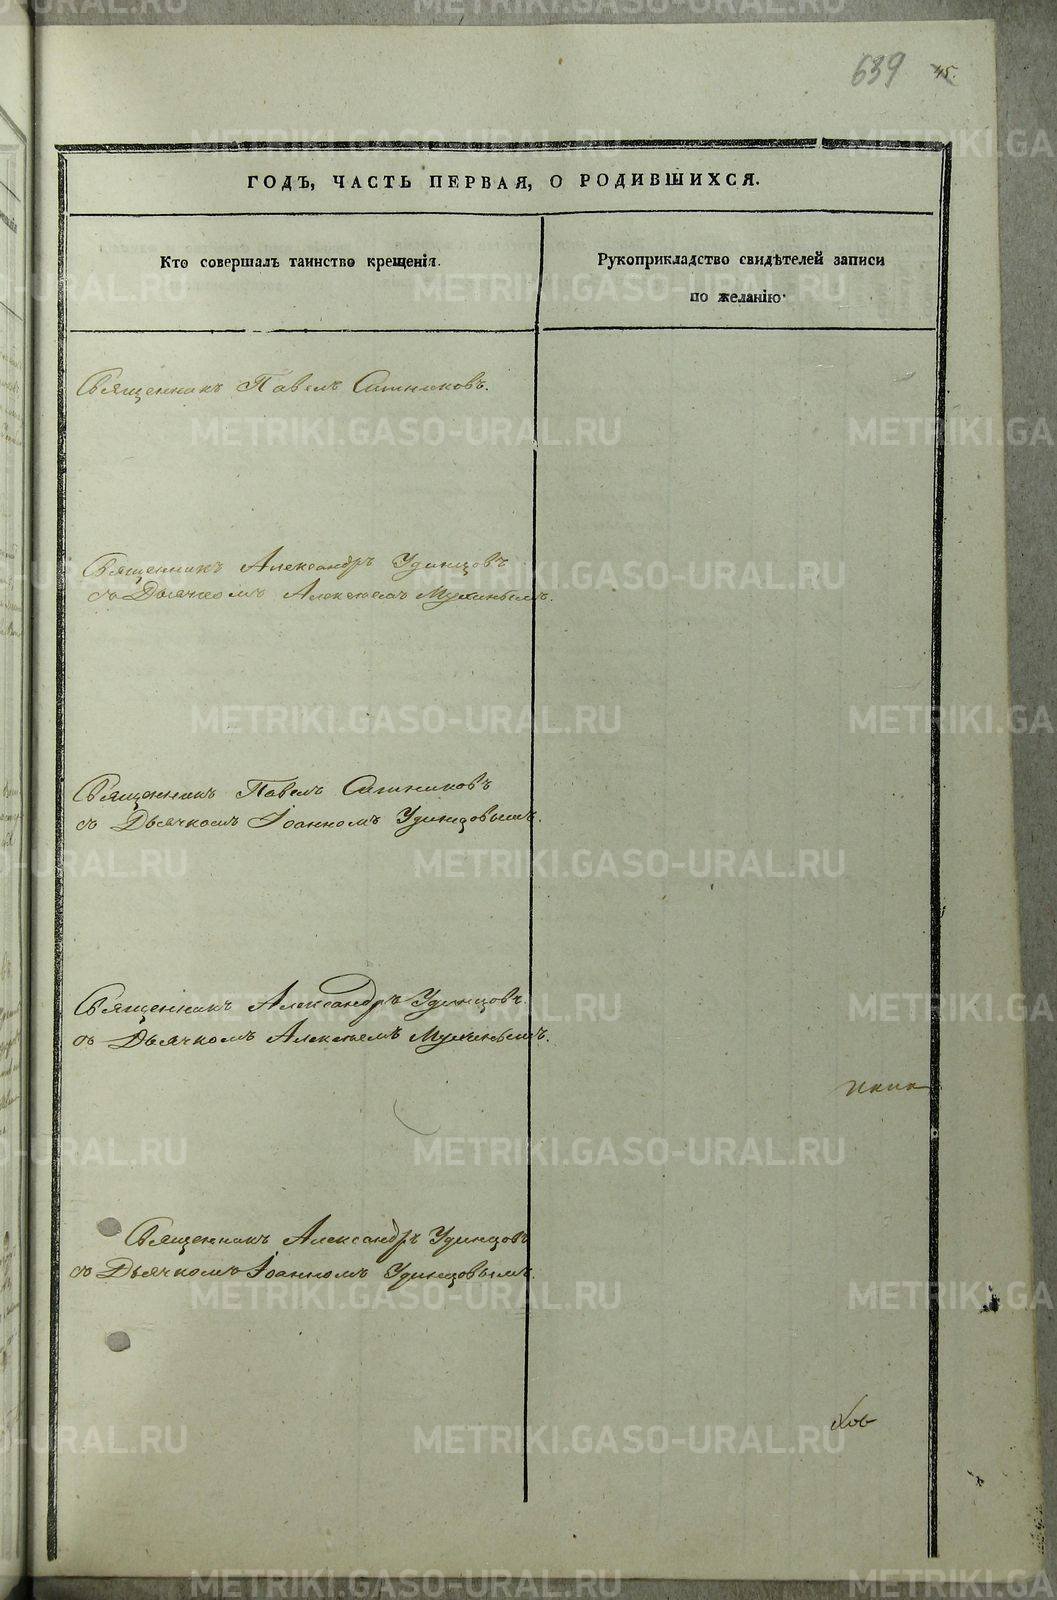 639 45.
ГОДЪ, ЧАСТЬ ПЕРВАЯ, О РОДИВШИХСЯ.
Кто совершалъ таинство крещенія.
Рукоприкладство свидѣтелей записи
по желанію.
Священникъ Павелъ
Священникъ Александръ Удинцовъ
съ Дьячкомъ Алексѣемъ Мухинымъ.
Священникъ Павелъ
съ Дьячкомъ Іоанномъ Удинцовымъ.
Священникъ Александръ Удинцовъ
съ Дьячкомъ Алексѣемъ Мухинымъ.
Священникъ Александръ Удинцовъ
съ Дьячкомъ Іоанномъ Удинцовымъ.
METRIKI.GASO-URAL.RU